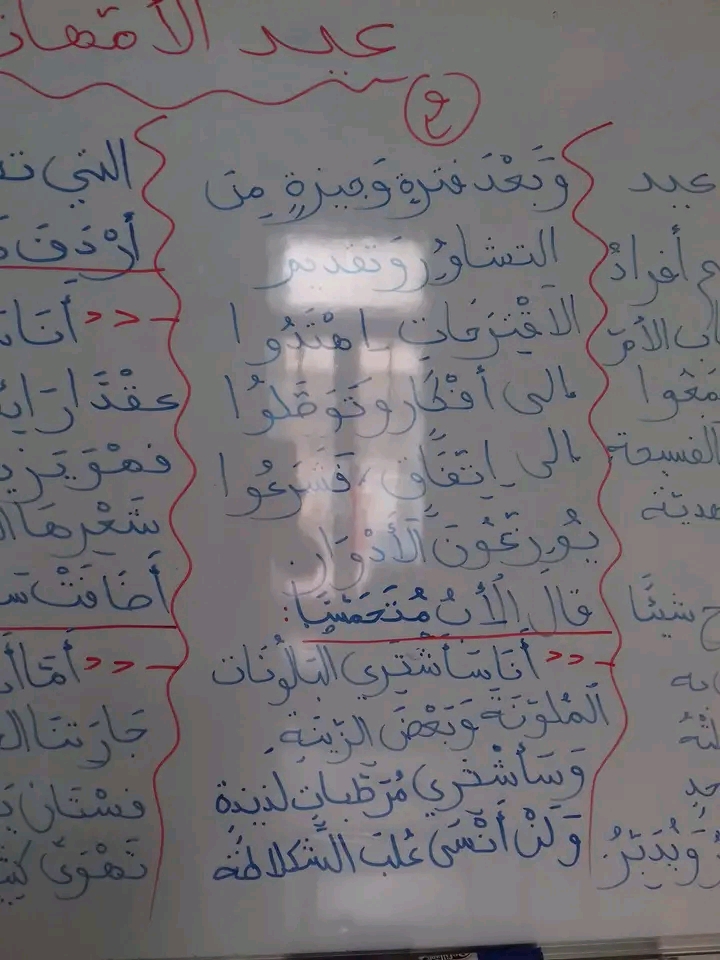 عيد الأمهات
و
عيد
أفراد
الأمر
الفسحة
شيئًا
وَيُدَبِّرُ
وَبَعْدَ فترةٍ وَجيزةٍ مِنَ
التشاوُرِ وَتقديم
الاقْتِرَحَاتِ اِهْتَدُوا
إلى أفْكَارٍ وتَوَصَّلُوا
إلى اِتّفَاقٍ، فَشَرَعُوا
يُوَزِّعُونَ الْأَدْوَارَ.
قال الْأَبُ مُتَحَمِّسًا:
>> أَنَا سَأَشْتَري البَالُونَات
الْمُلوّنَةَ وَبَعْضَ الزّينَةِ
وَسَأشْتري مُرَطّبات لذيذة
وَلَنْ أَنْسَى عُلبَ الشّكلاطة
التي
أرْدَفَ
>> أَنَا
عِقْدًا رَائِ
فهْوَ يَزيد
شَعْرِهَا
أضَافَتْ
>> أَمّا
جَارَتنَا
فسْتَان
تَهْوَى